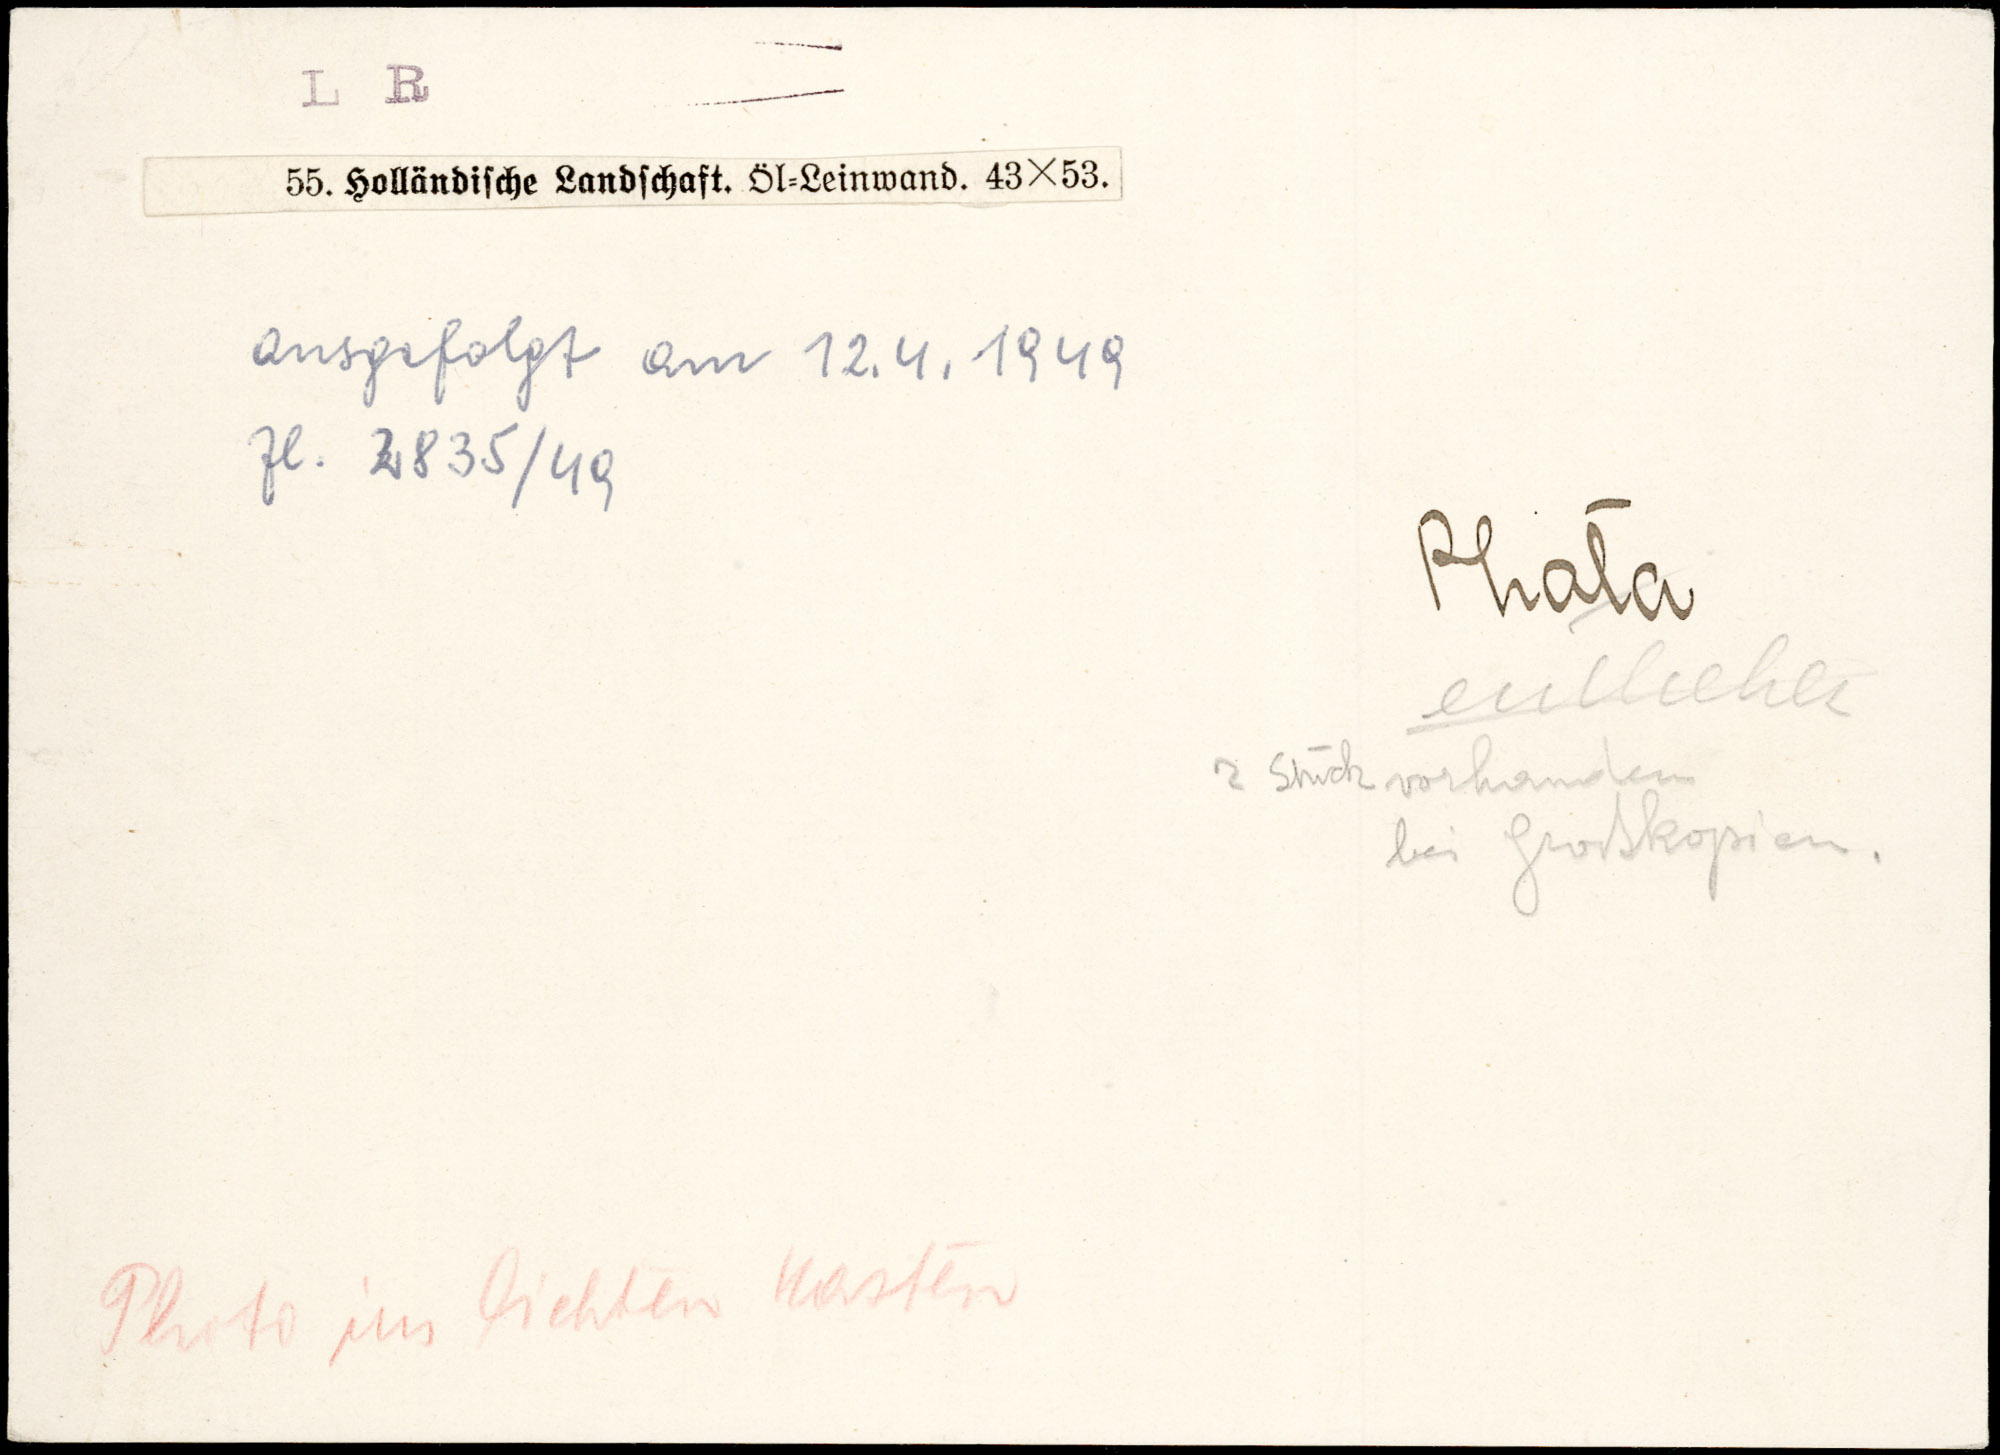 L R
55. Holländische Landschaft. Öl-Leinwand. 43×53.
ausgefolgt am 12.4.1949
Zl. 2835/49
Photo
entliehen
2 Stück vorhanden
bei Großkopien.
Photo im lichten Kasten